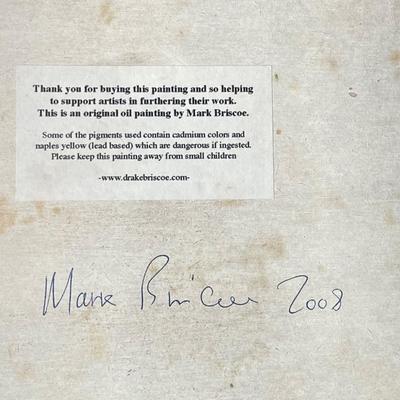 Thank you for buying this painting and so helping
to support artists in furthering their work.
This is an original oil painting by Mark Briscoe.
Some of the pigments used contain cadmium colors and
naples yellow (lead based) which are dangerous if ingested.
Please keep this painting away from small children
-www.drakebriscoe.com-
Mark Briscoe 2008